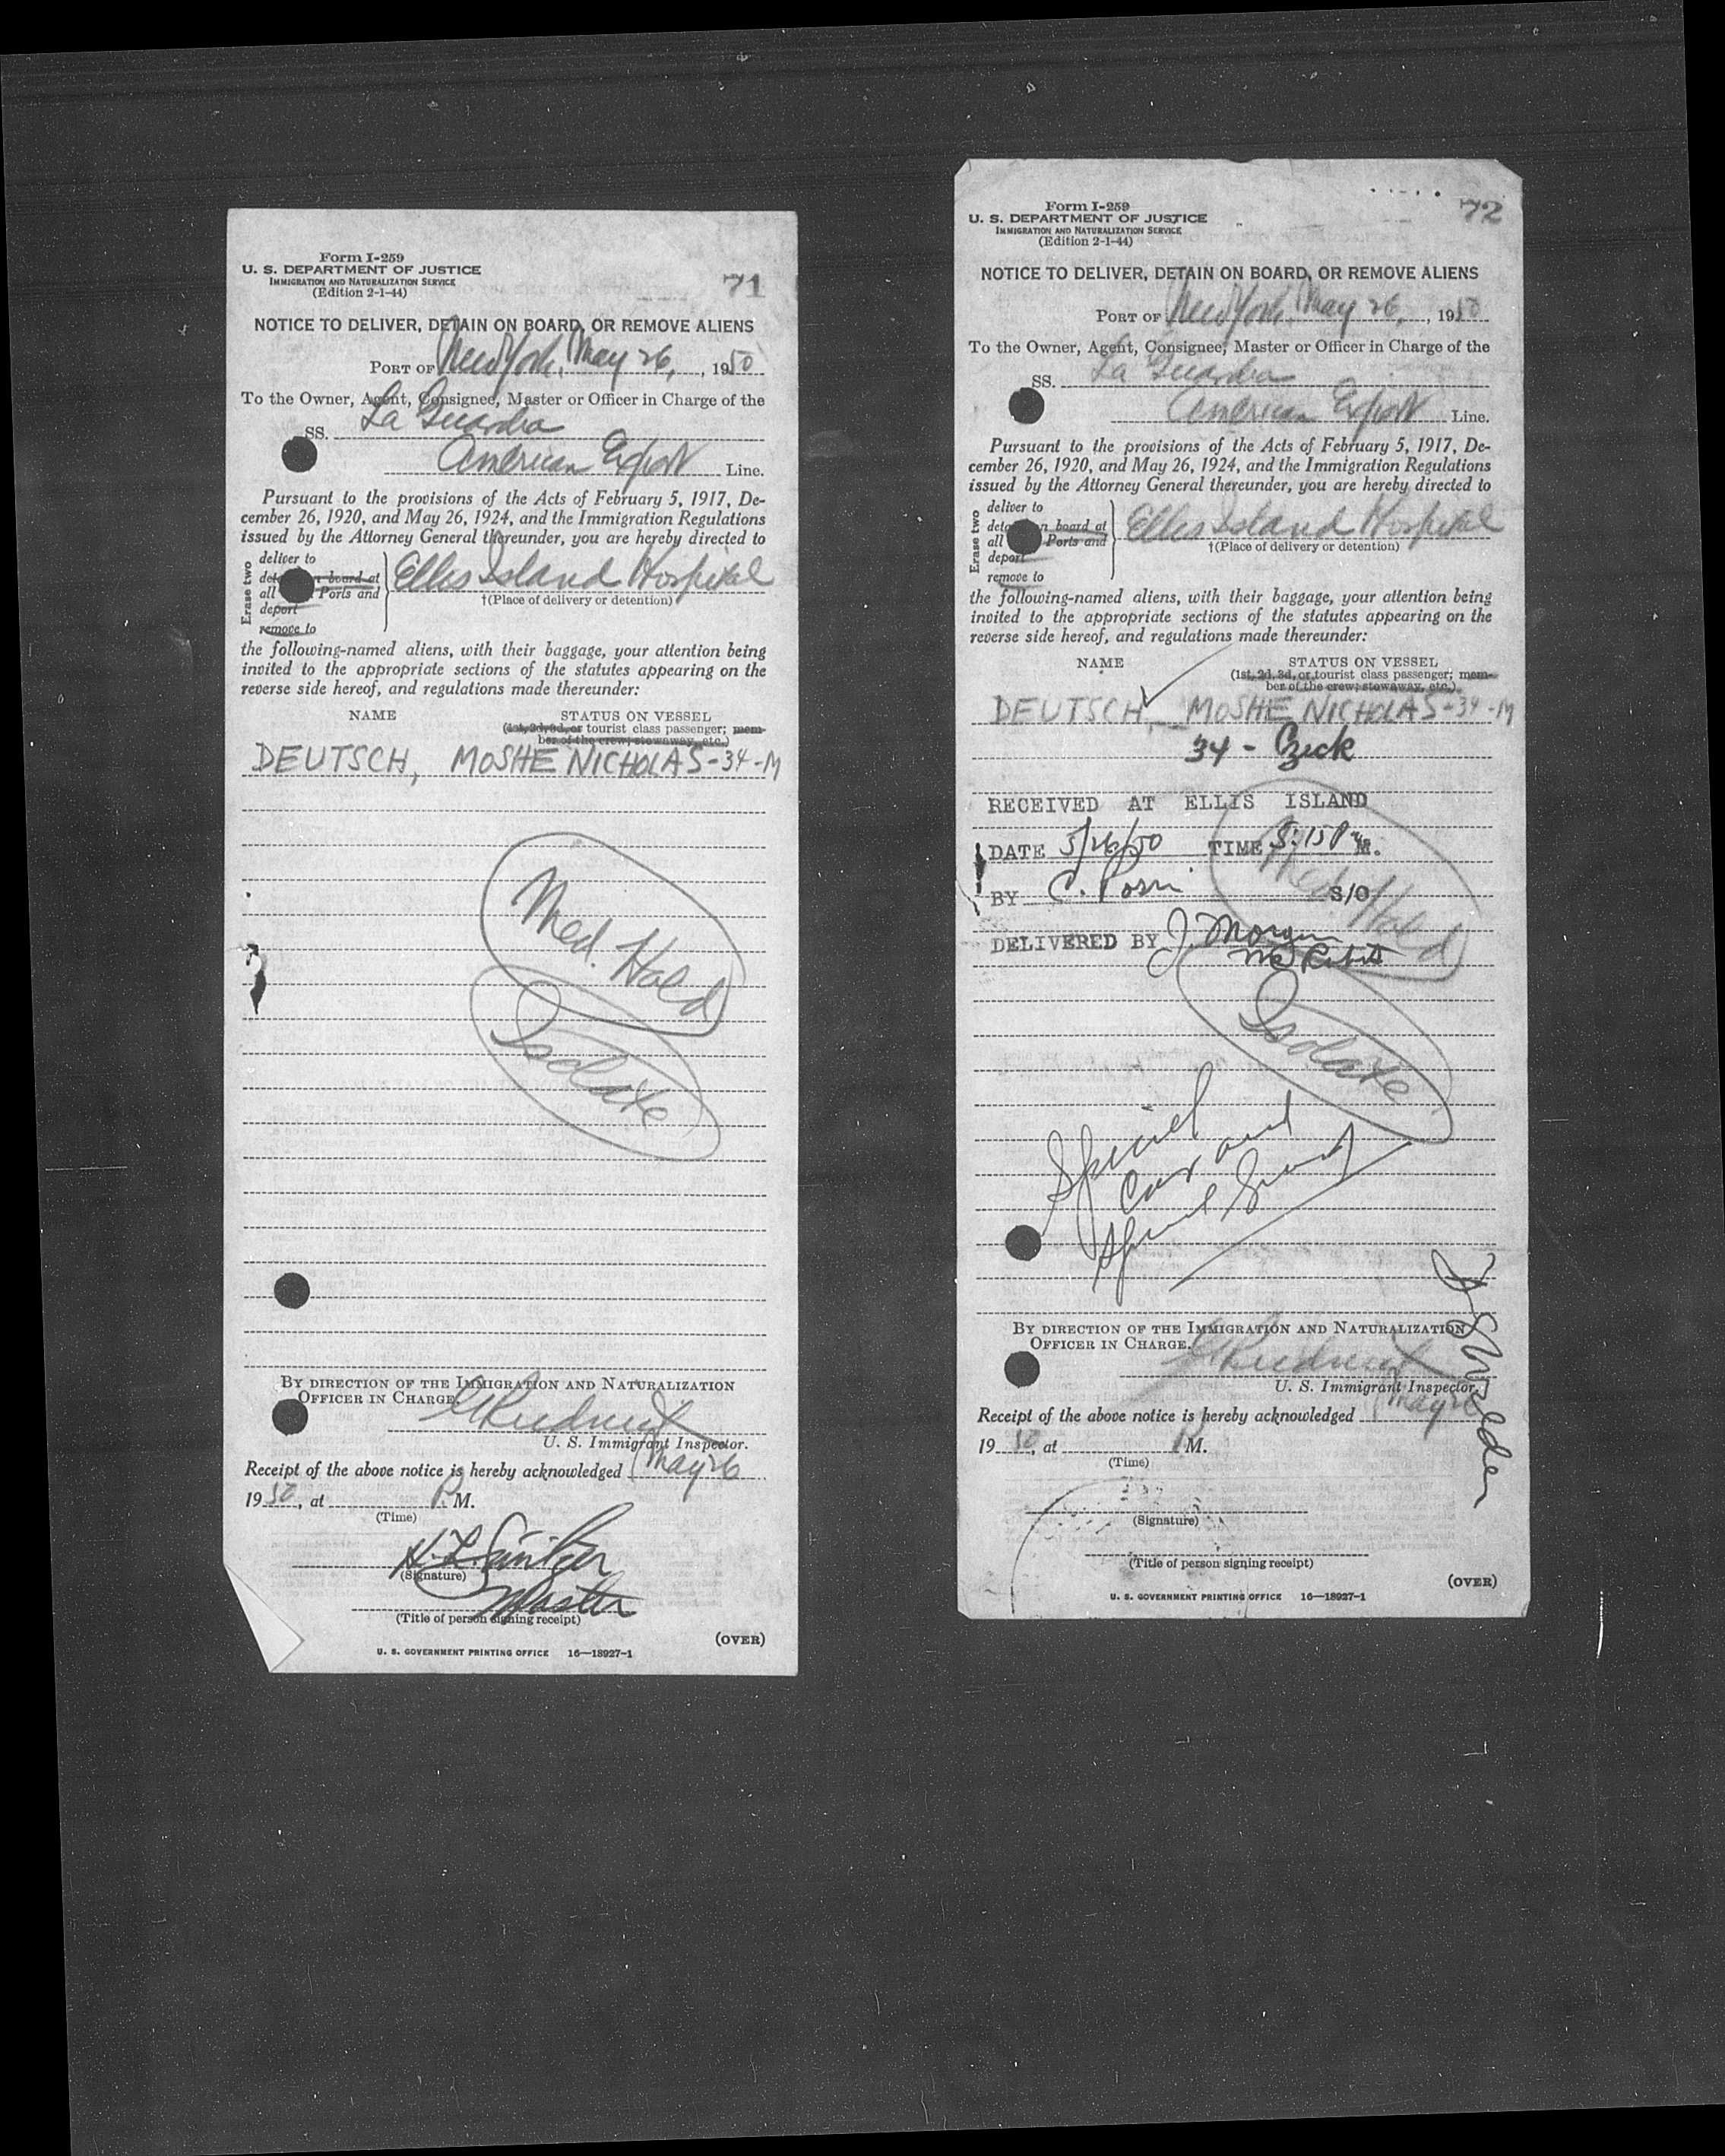 Form I-259
U. S. DEPARTMENT OF JUSTICE
IMMIGRATION AND NATURALIZATION SERVICE
(Edition 2-1-44)
71
NOTICE TO DELIVER, DETAIN ON BOARD, OR REMOVE ALIENS
PORT OF New York, May 26, , 1950
To the Owner, Agent, Consignee, Master or Officer in Charge of the
SS. La Guardia
American Export Line.
Pursuant to the provisions of the Acts of February 5, 1917, De-
cember 26, 1920, and May 26, 1924, and the Immigration Regulations
issued by the Attorney General thereunder, you are hereby directed to
Erase two
deliver to
board at
all Ports and
deport
remove to
Ellis Island Hospital
†(Place of delivery or detention)
the following-named aliens, with their baggage, your attention being
invited to the appropriate sections of the statutes appearing on the
reverse side hereof, and regulations made thereunder:
NAME STATUS ON VESSEL
(1st, 2d, 3d, or tourist class passenger; mem-
ber of the crew; stowaway, etc.)
DEUTSCH, MOSHE NICHOLAS-34-M
Med. Hold
Isolate
BY DIRECTION OF THE IMMIGRATION AND NATURALIZATION
OFFICER IN CHARGE.
U. S. Immigrant Inspector.
Receipt of the above notice is hereby acknowledged May 26
1950, at P. M.
(Time)
(Signature)
Master
(Title of person signing receipt)
(OVER)
U. S. GOVERNMENT PRINTING OFFICE 16—18927-1
Form I-259
U. S. DEPARTMENT OF JUSTICE
IMMIGRATION AND NATURALIZATION SERVICE
(Edition 2-1-44)
72
NOTICE TO DELIVER, DETAIN ON BOARD, OR REMOVE ALIENS
PORT OF New York, May 26, , 1950
To the Owner, Agent, Consignee, Master or Officer in Charge of the
SS. La Guardia
American Export Line.
Pursuant to the provisions of the Acts of February 5, 1917, De-
cember 26, 1920, and May 26, 1924, and the Immigration Regulations
issued by the Attorney General thereunder, you are hereby directed to
Erase two
deliver to
board at
all Ports and
deport
remove to
Ellis Island Hospital
†(Place of delivery or detention)
the following-named aliens, with their baggage, your attention being
invited to the appropriate sections of the statutes appearing on the
reverse side hereof, and regulations made thereunder:
NAME STATUS ON VESSEL
(1st, 2d, 3d, or tourist class passenger; mem-
ber of the crew; stowaway, etc.)
DEUTSCH, MOSHE NICHOLAS-34-M
34 - Czeck
RECEIVED AT ELLIS ISLAND
DATE 5/26/50 TIME 5:15 P M.
BY C. S/O
DELIVERED BY J. Morgan
Med. Hold
Isolate
Special
Car and
Special Guard
BY DIRECTION OF THE IMMIGRATION AND NATURALIZATION
OFFICER IN CHARGE.
U. S. Immigrant Inspector.
Receipt of the above notice is hereby acknowledged May 26
1950, at P. M.
(Time)
(Signature)
(Title of person signing receipt)
(OVER)
U. S. GOVERNMENT PRINTING OFFICE 16—18927-1